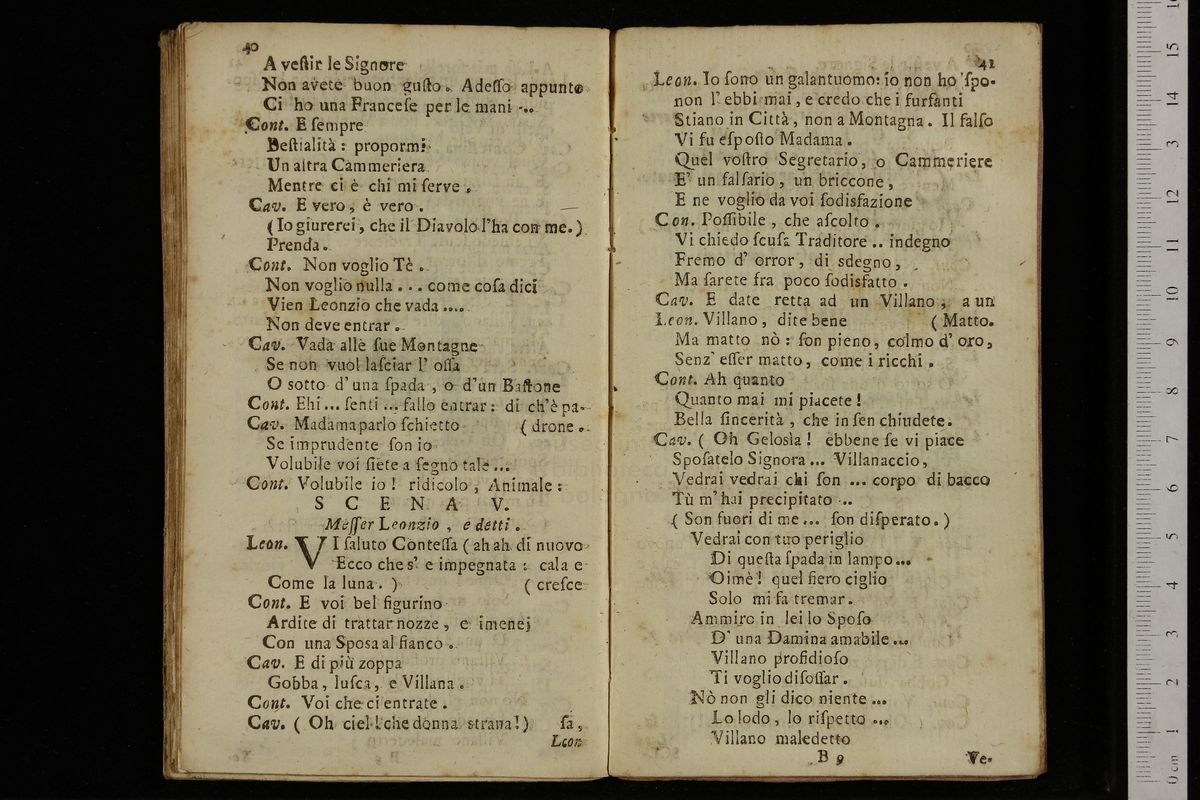 40
A veſtir le Signore
Non avete buon guſto. Adeſſo appunto
Ci ho una Franceſe per le mani ...
Cont. E ſempre
Beſtialità: propormi
Un altra Cammeriera
Mentre ci è chi mi ſerve.
Cav. E vero, è vero.
(Io giurerei, che il Diavolo l'ha con me.)
Prenda.
Cont. Non voglio Tè.
Non voglio nulla... come coſa dici
Vien Leonzio che vada....
Non deve entrar.
Cav. Vada alle ſue Montagne
Se non vuol laſciar l' oſſa
O sotto d'una ſpada, o d'un Baſtone
Cont. Ehi... ſenti... fallo entrar: di ch'è pa-
Cav. Madama parlo ſchietto (drone.
Se imprudente ſon io
Volubile voi ſiete a ſegno tale...
Cont. Volubile io! ridicolo, Animale:
SCENA V.
Meſſer Leonzio, e detti.
Leon. VI ſaluto Conteſſa (ah ah di nuovo
Ecco che s' e impegnata: cala e
Come la luna.) (creſce
Cont. E voi bel figurino
Ardite di trattar nozze, e imenej
Con una Sposa al fianco.
Cav. E di più zoppa
Gobba, luſca, e Villana.
Cont. Voi che ci entrate.
Cav. (Oh ciel! che donna strana!) ſa,
Leon
41
Leon. Io ſono un galantuomo: io non ho 'ſpo-
non l' ebbi mai, e credo che i furfanti
Stiano in Città, non a Montagna. Il falſo
Vi fu eſpoſto Madama.
Quel voſtro Segretario, o Cammeriere
E' un falſario, un briccone,
E ne voglio da voi ſodisfazione
Con. Poſſibile, che aſcolto.
Vi chiedo ſcuſa Traditore.. indegno
Fremo d' orror, di sdegno,
Ma ſarete fra poco ſodisfatto.
Cav. E date retta ad un Villano, a un
Leon. Villano, dite bene (Matto.
Ma matto nò: ſon pieno, colmo d' oro,
Senz' eſſer matto, come i ricchi.
Cont. Ah quanto
Quanto mai mi piacete!
Bella ſincerità, che in ſen chiudete.
Cav. (Oh Gelosìa! ebbene ſe vi piace
Spoſatelo Signora... Villanaccio,
Vedrai vedrai chi ſon ... corpo di bacco
Tù m'hai precipitato ...
(Son fuori di me... ſon diſperato.)
Vedrai con tuo periglio
Di queſta ſpada in lampo...
Oimè! quel fiero ciglio
Solo mi fa tremar.
Ammiro in lei lo Spoſo
D' una Damina amabile...
Villano profidioſo
Ti voglio diſoſſar.
Nò non gli dico niente ...
Lo lodo, lo riſpetto ...
Villano maledetto
B 9
Ve-
0 cm 1 2 3 4 5 6 7 8 9 10 11 12 13 14 15